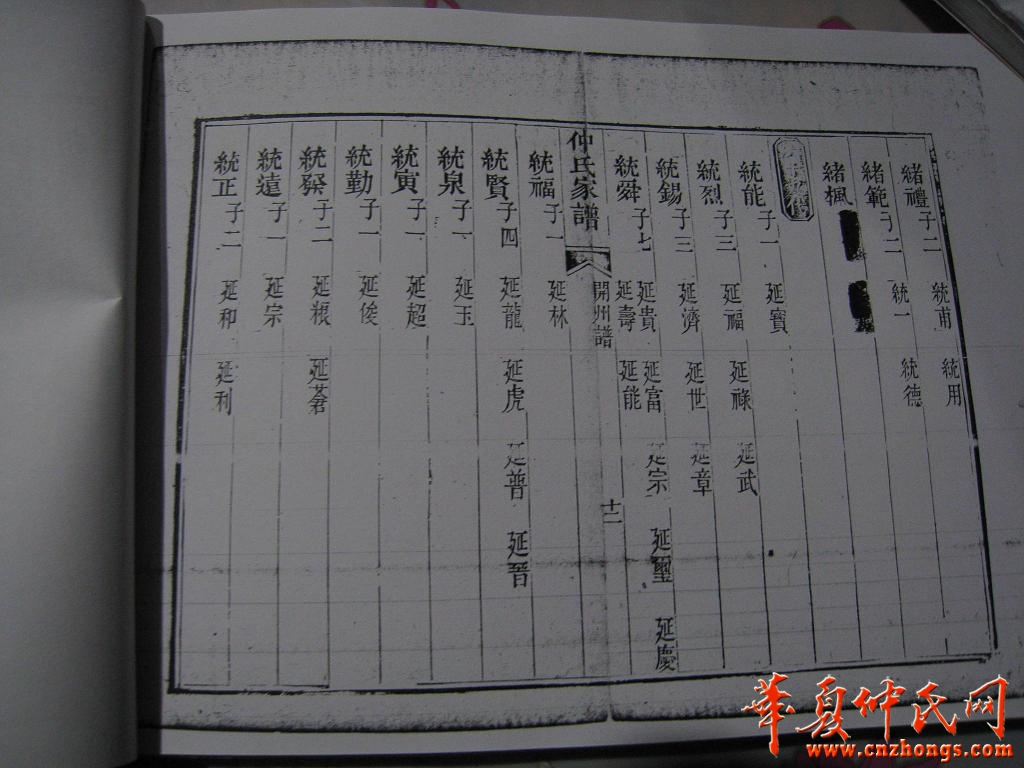 緒禮 子二 統甫 統用
緒範 子二 統一 統德
緒楓
統能 子一 延寶
統烈 子三 延福 延祿 延武
統錫 子三 延濟 延世 延章
統舜 子七 延貴 延富 延宗 延璽 延慶
延壽 延能
仲氏家譜 開州譜 十二
統福 子一 延林
統賢 子四 延龍 延虎 延普 延晉
統泉 子一 延玉
統寅 子一 延超
統勤 子一 延俊
統 子二 延根 延蒼
統遠 子一 延宗
統正 子二 延和 延利
華夏仲氏网
www.cnzhongs.com